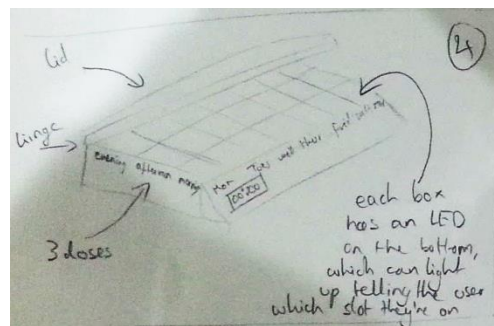 4
Lid
hinge
evening afternoon morning
Mon Tue wed thur fri sat sun
00:00
3 doses
each box
has an LED
on the bottom,
which can light
up telling the user
which slot they're on